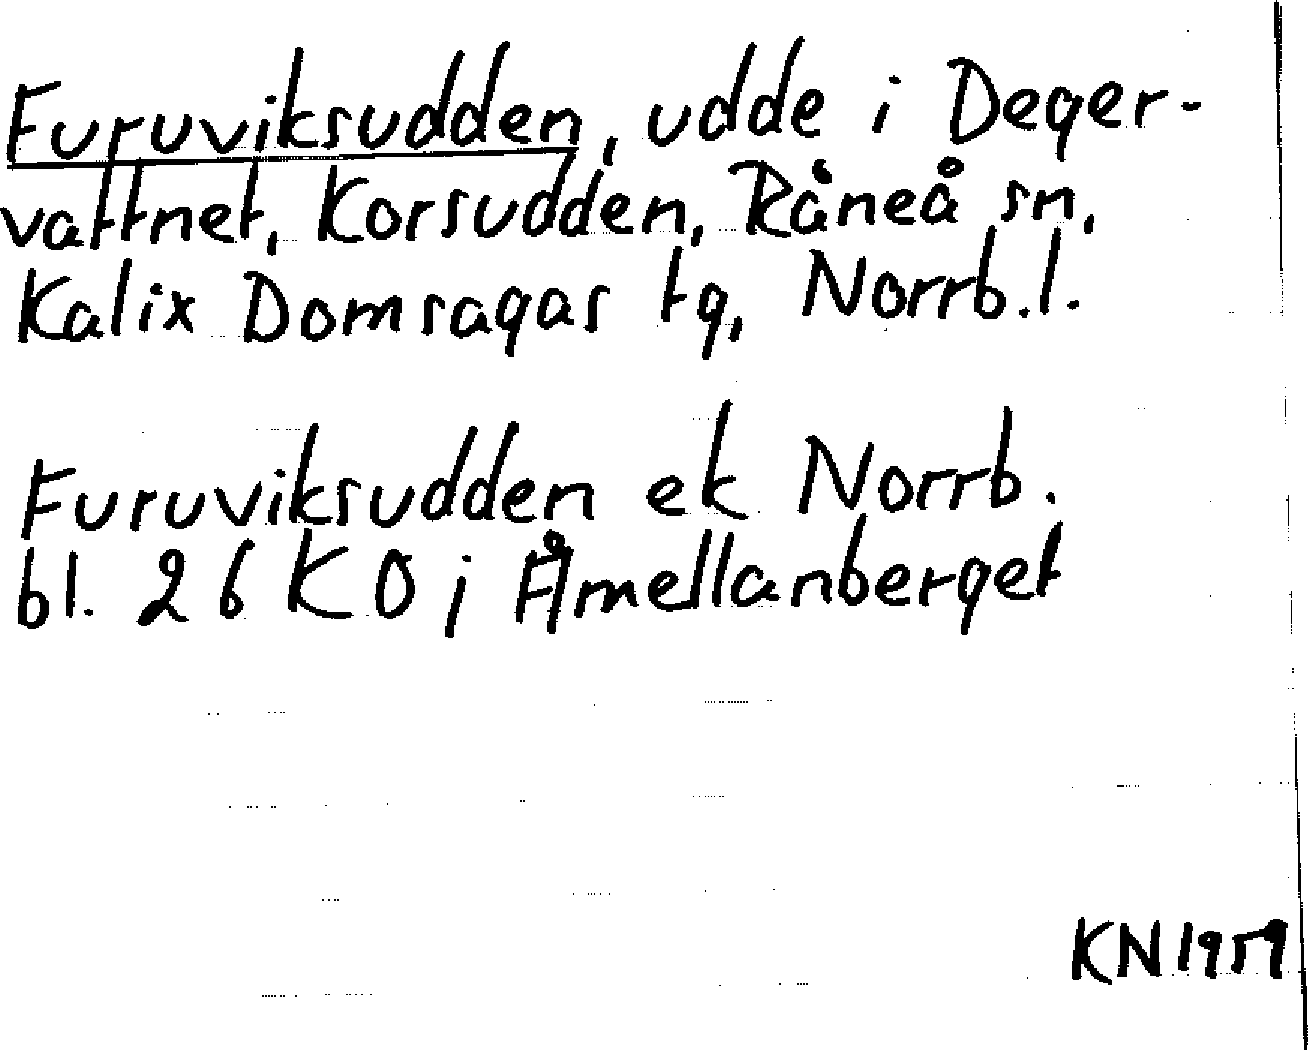 Furuviksudden, udde i Deger-
vattnet, Korsudden, Råneå sn,
Kalix Domsagas tg, Norrb.l.
Furuviksudden ek Norrb.
bl. 26 KO j Åmellanberget
KN1959